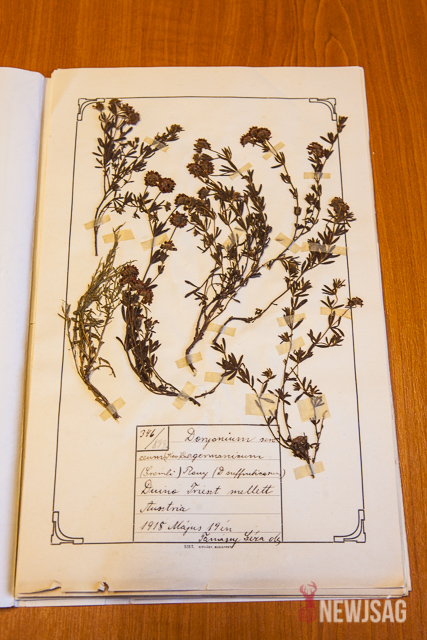 346/
Dorycnium
germanicum
(Gremli) Rouy (D suffruticosum)
Duino Triest mellett
Austria
1918 Május 19 én
Tamásy Géza
NEWJSÁG